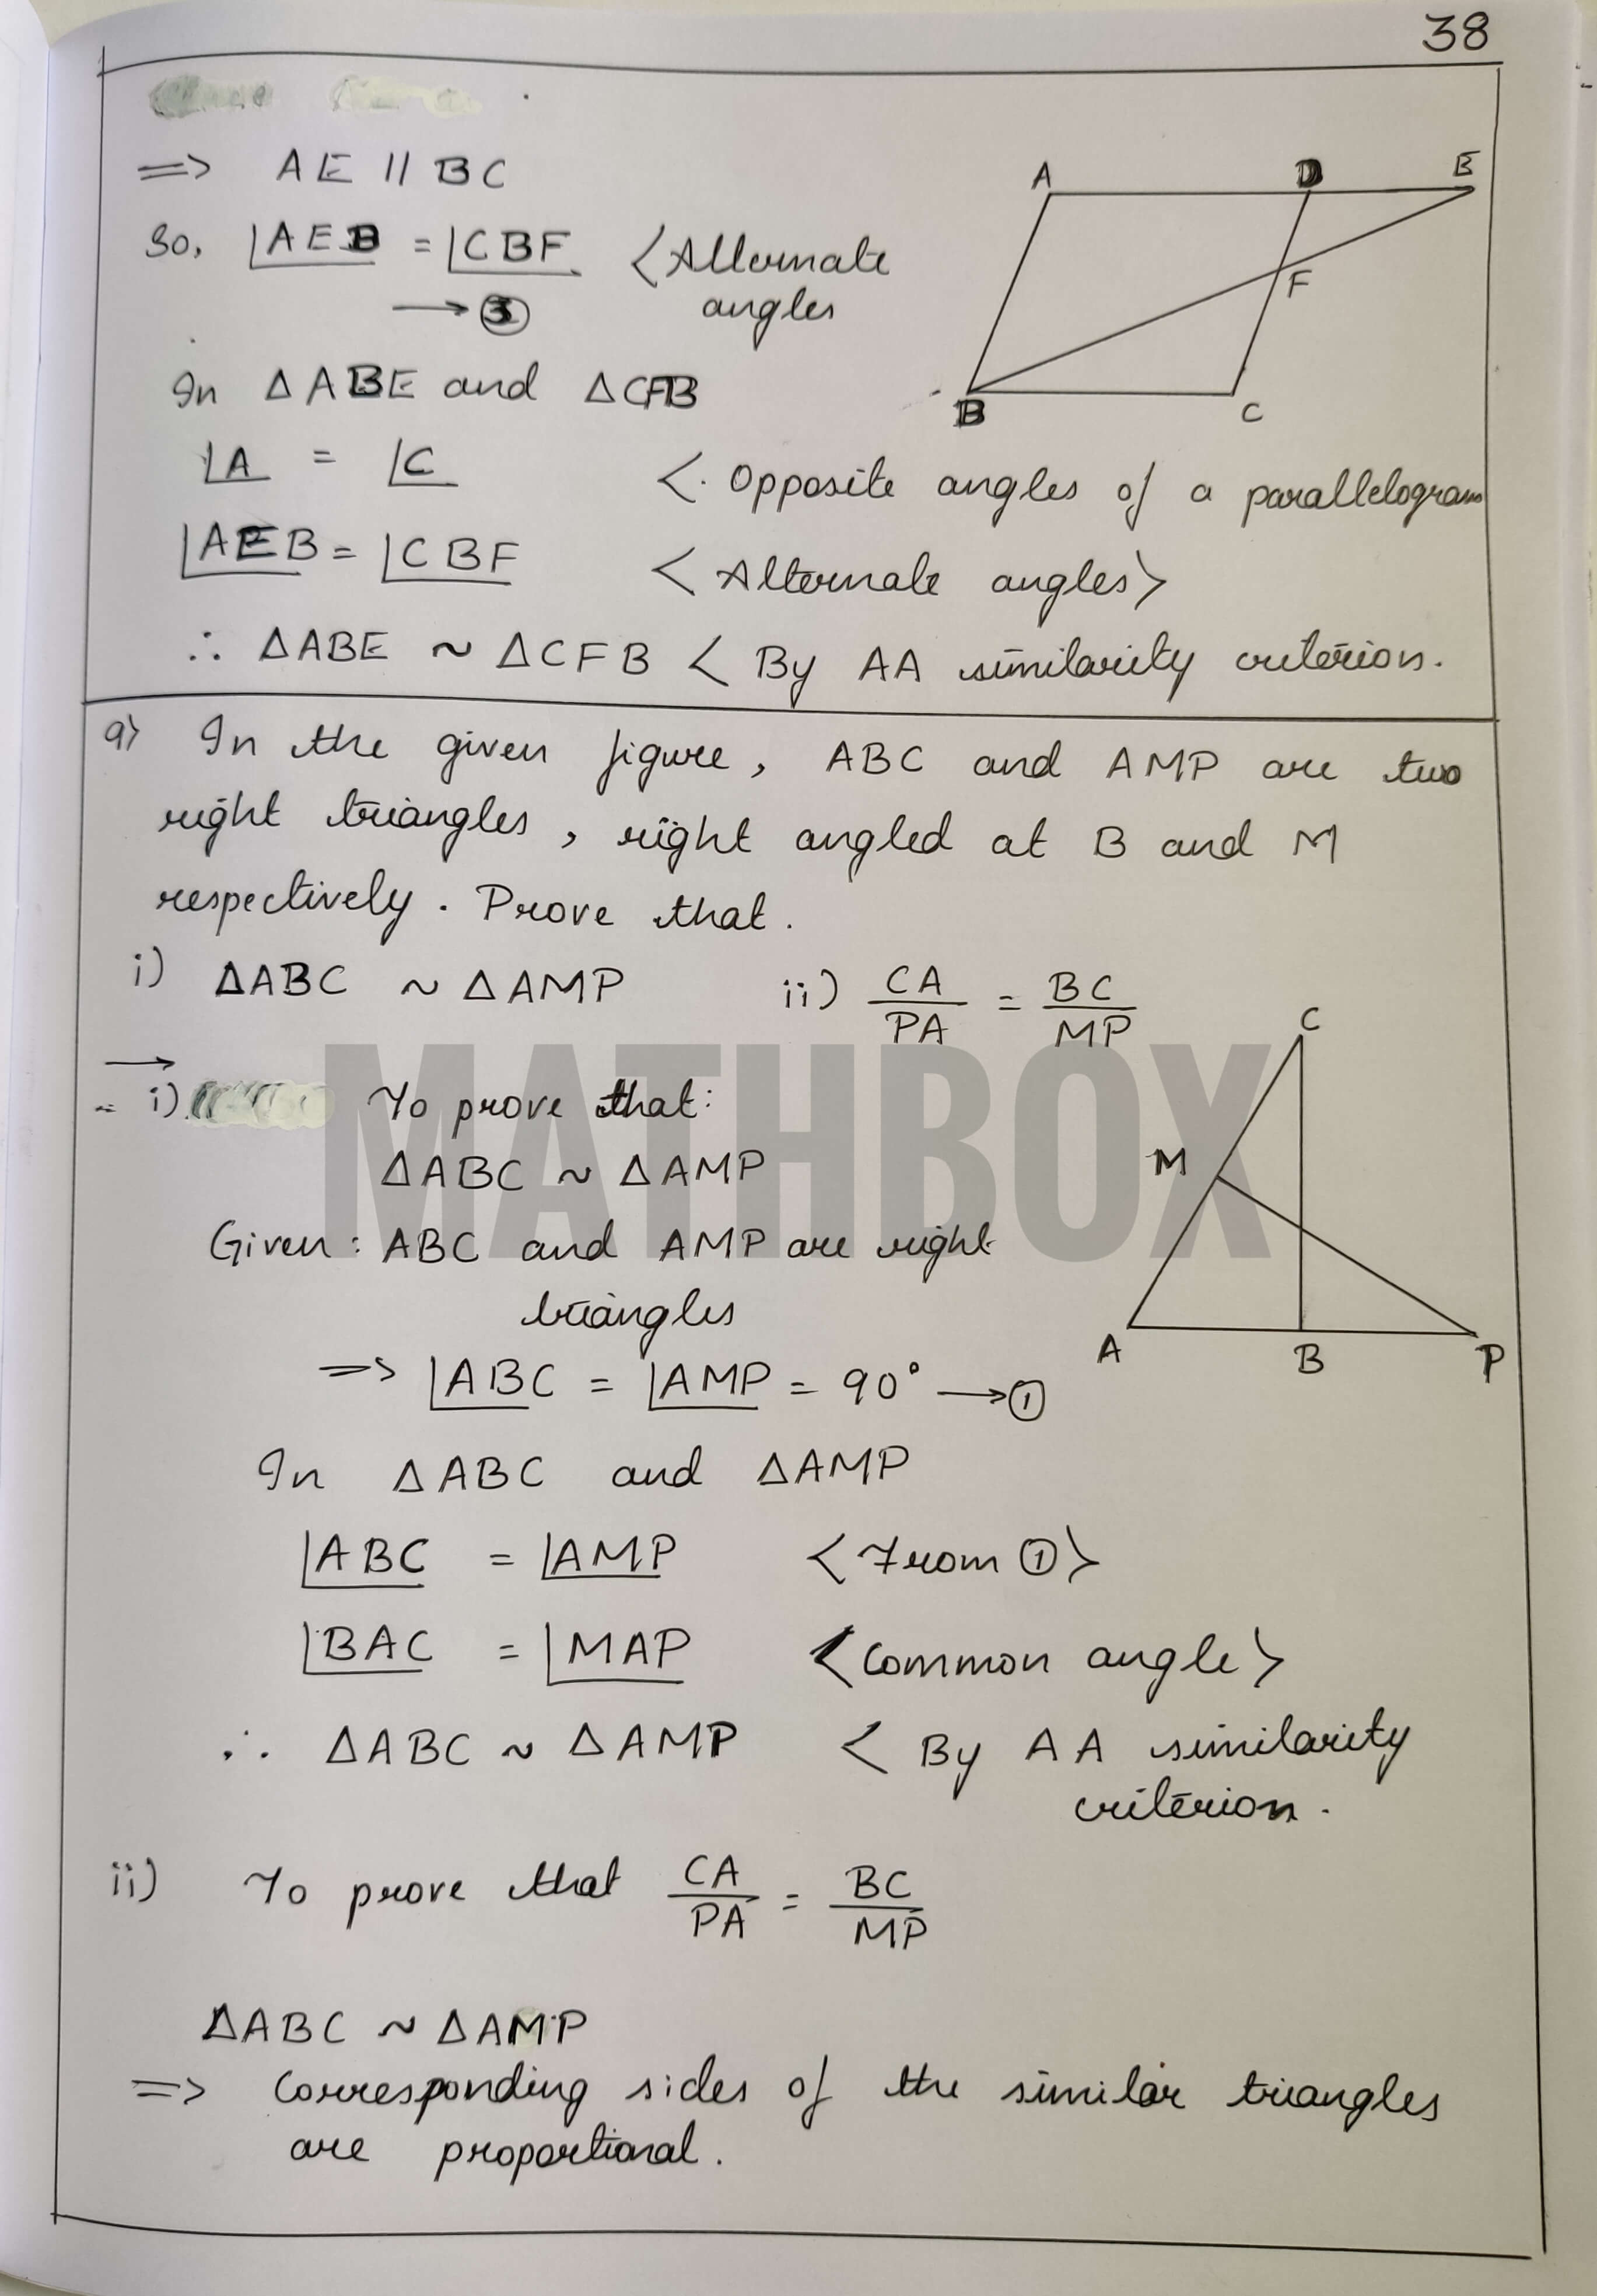 38
=> AE || BC
So, ∠AEB = ∠CBF <Alternate
→ ③ angles
In △ABE and △CFB
∠A = ∠C < Opposite angles of a parallelogram
∠AEB = ∠CBF <Alternate angles>
∴ △ABE ~ △CFB < By AA similarity criterion.
A D E
F
B C
9) In the given figure, ABC and AMP are two
right triangles, right angled at B and M
respectively. Prove that.
i) △ABC ~ △AMP ii) CA/PA = BC/MP
→
i) To prove that:
△ABC ~ △AMP
Given: ABC and AMP are right
triangles
=> ∠ABC = ∠AMP = 90° → ①
C
M
A B P
MATHBOX
In △ABC and △AMP
∠ABC = ∠AMP <From ①>
∠BAC = ∠MAP <Common angle>
∴ △ABC ~ △AMP < By AA similarity
criterion.
ii) To prove that CA/PA = BC/MP
△ABC ~ △AMP
=> Corresponding sides of the similar triangles
are proportional.